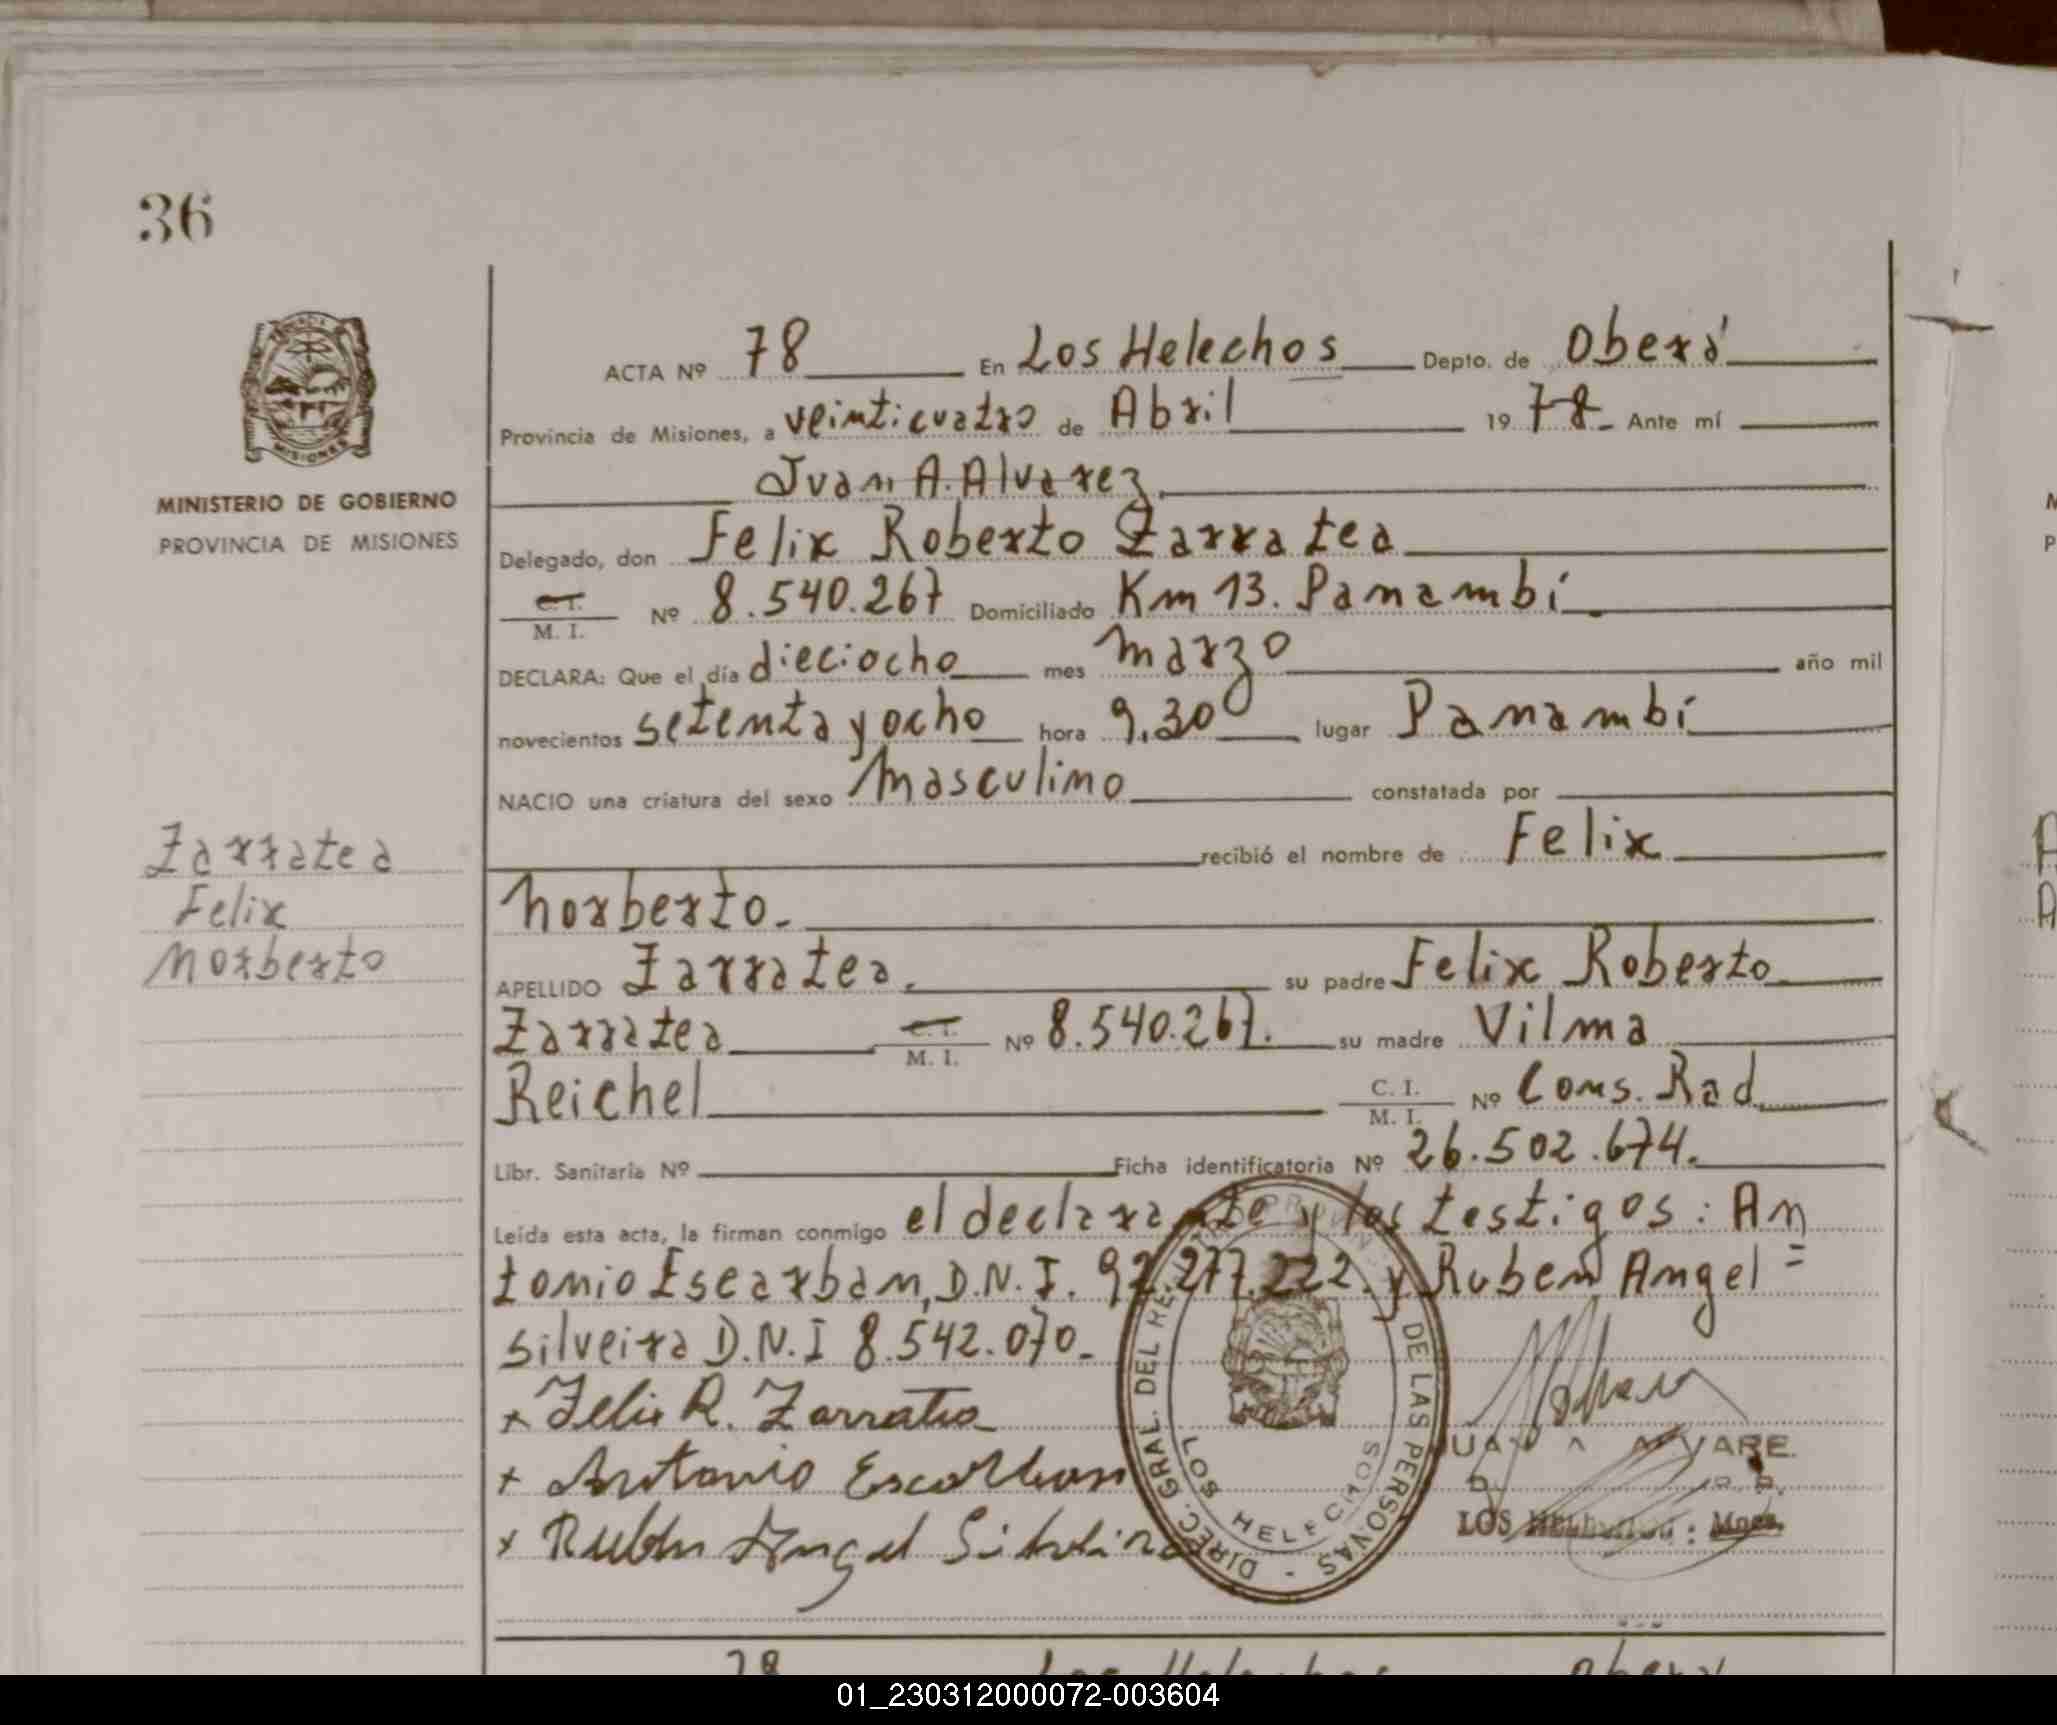 36
MISIONES
MINISTERIO DE GOBIERNO
PROVINCIA DE MISIONES
ACTA Nº 78 En Los Helechos Depto. de Oberá
Provincia de Misiones, a veinticuatro de Abril 1978 Ante mí
Juan A. Alvarez.
Delegado, don Felix Roberto Zarratea
C. I.
M. I. Nº 8.540.267 Domiciliado Km 13. Panambí
DECLARA: Que el día dieciocho mes marzo año mil
novecientos setenta y ocho hora 9,30 lugar Panambí
NACIO una criatura del sexo masculino constatada por
recibió el nombre de Felix
Norberto.
Zarratea
Felix
Norberto
APELLIDO Zarratea. su padre Felix Roberto
Zarratea C. I. M. I. Nº 8.540.267. su madre Vilma
Reichel C. I. M. I. Nº Cons. Rad
Libr. Sanitaria Nº Ficha identificatoria Nº 26.502.674.
Leída esta acta, la firman conmigo el declarante y los testigos: An
tonio Escarban, D.N.I. 92.277.222. y Ruben Angel =
Silveira D.N.I 8.542.070.
x Felix R. Zarratea
+ Antonio Escarban
x Ruben Angel Silveira
DIREC. GRAL. DEL DE LAS PERSONAS -
HELECHOS
JUAN A ALVARE.
LOS
78 Los Helechos Oberá
01_230312000072-003604